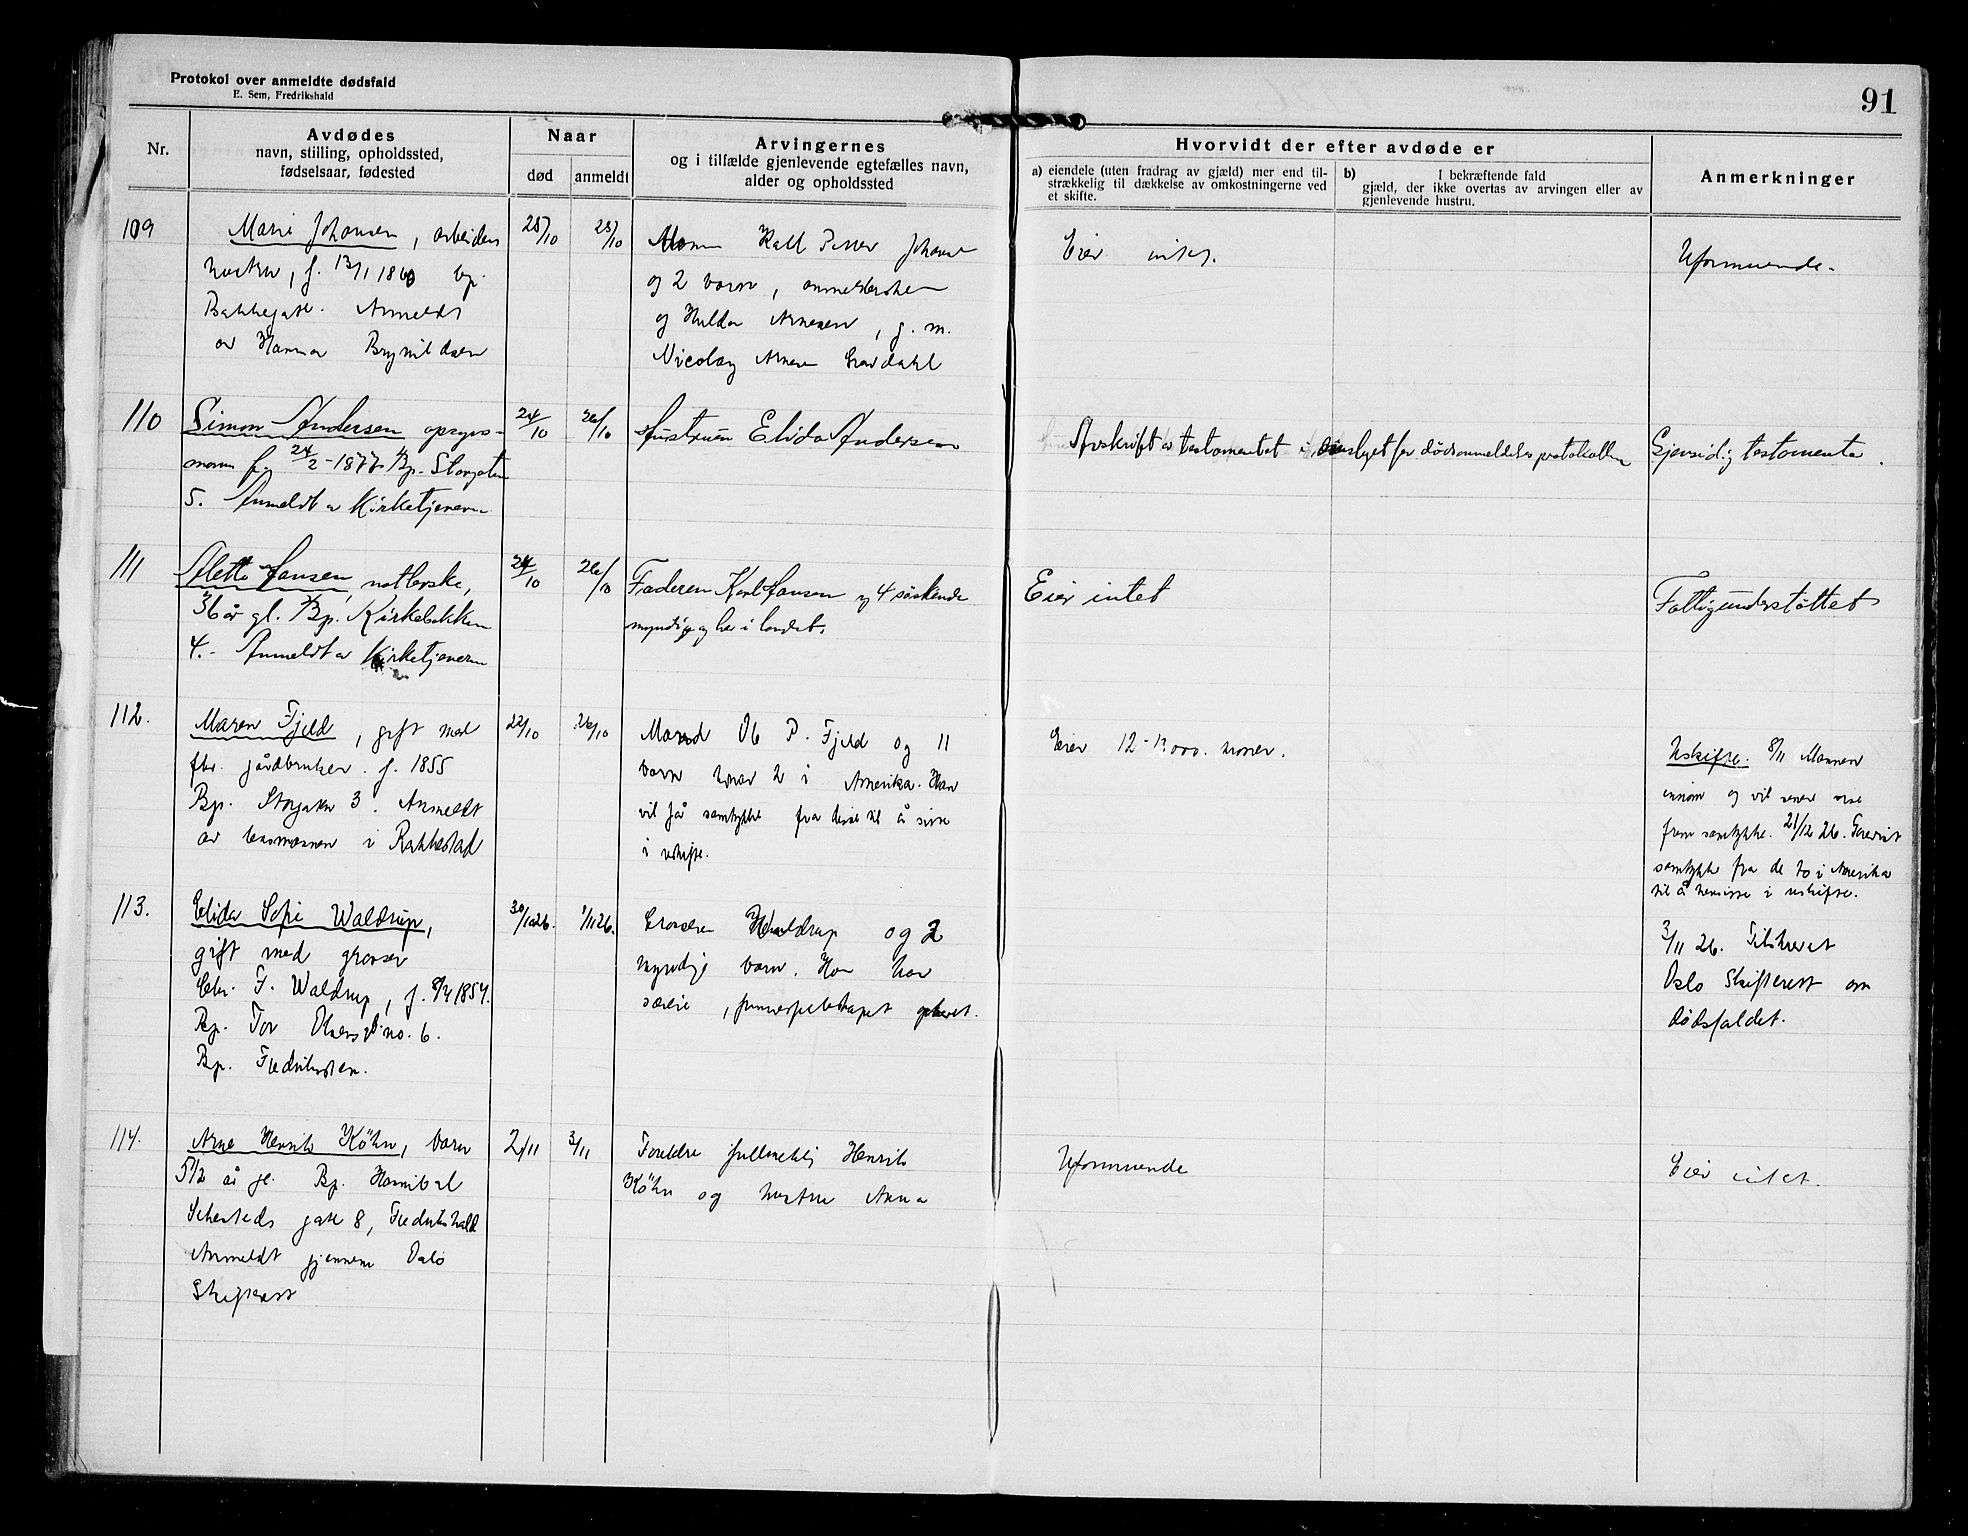 Protokol over anmeldte dødsfald
E. Sem, Fredrikshald
91
Nr.
Avdødes
navn, stilling, opholdssted,
fødselsaar, fødested
Naar
død
anmeldt
Arvingernes
og i tilfælde gjenlevende egtefælles navn,
alder og opholdssted
Hvorvidt der efter avdøde er
a) eiendele (uten fradrag av gjæld) mer end til-
strækkelig til dækkelse av omkostningerne ved
et skifte.
b) I bekræftende fald
gjæld, der ikke overtas av arvingen eller av
gjenlevende hustru.
Anmerkninger
109
Marie Johansen, arbeiders
hustru, f. 13/1 1860 bp.
Bakkegate. Anmeldt
av Hanna Brynildsen
25/10
25/10
Johans
og 2 barn, anmelderske
og Hulda Arnesen, g. m.
Nicolay Arnesen
Eier intet.
Uformuende.
110
Simon Andersen opsyns-
mann 24/2-1877 Bp. Storgaten
5. Anmeldt av Kirketjeneren
24/10
26/10
Hustruen Elida Andersen
Avskrift av testamentet i omslaget for dødsanmeldelsprotokollen
Gjensidig testamente.
111
Alette Hansen,
36 år gl. Bp. Kirkebakken
4.- Anmeldt av Kirketjeneren
24/10
26/10
Faderen Karl Hansen og 4 søskende
myndige og her i landet.
Eier intet
Fattigunderstøttet
112.
Maren Fjeld, gift med
fhv. gårdbruker. f. 1855
Bp. Storgaten 3. Anmeldt
av lensmannen i Rakkestad
22/10
26/10
Mand Ole P. Fjeld og 11
barn hvorav 2 i Amerika. Han
vil få samtykke fra disse til å sitte
i uskifte.
Eier 12-13000. kroner.
Uskifte. 8/11 Mannen
innom og vil senere vise
frem samtykke. 21/12 26. Forevist
samtykke fra de to i Amerika
til å hensitte i uskifte.
113.
Elida Sofie Waldrup,
gift med grosser
Chr. F. Waldrup, f. 8/4 1854.
Bp. Tor Olsens gt no. 6.
Bp. Fredriksten.
30/10 26.
1/11 26.
Grosserer Waldrup og 2
myndige barn. Hun har
særeie,
3/11 26. Tilskrevet
Oslo Skifterett om
dødsfaldet.
114.
Arne Henrik Köhn, barn
5 1/2 år gl. Bp. Hannibal
Sehesteds gate 8, Fredrikshald
Anmeldt gjennem Oslo
Skifterett
2/11
3/11
Foreldre fullmektig Henrik
Köhn og hustru Anna
Uformuende
Eier intet.